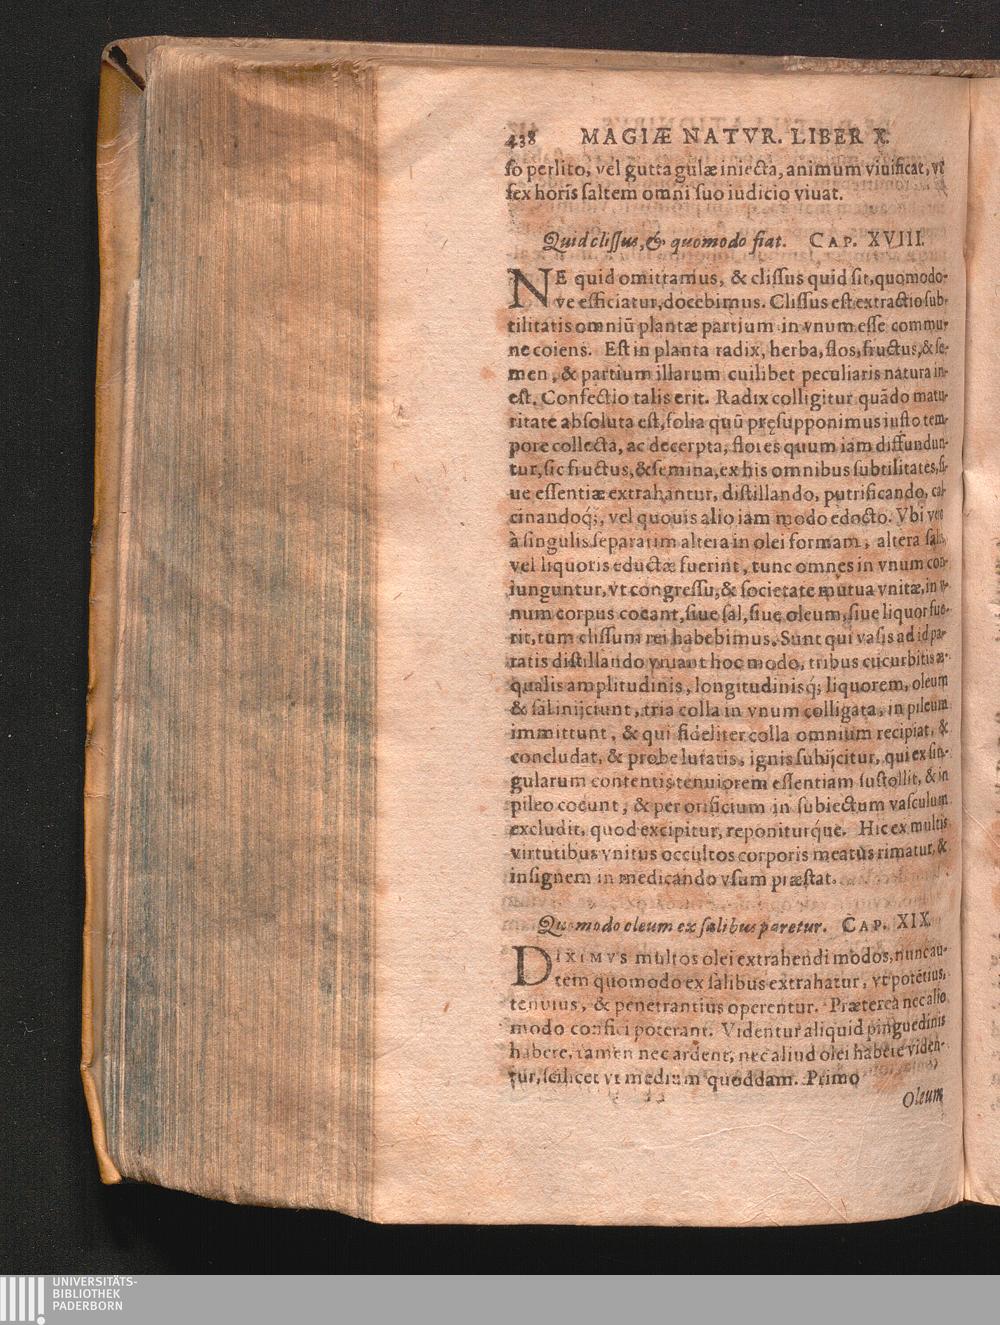 438 MAGIÆ NATVR. LIBER X.
ſo perlito, vel gutta gulæ iniecta, animum viuificat, vt
ſex horis ſaltem omni ſuo iudicio viuat.
Quid cliſſus, & quomodo fiat. CAP. XVIII.
NE quid omittamus, & cliſſus quid ſit, quomodo-
ve efficiatur, docebimus. Cliſſus eſt extractio ſub-
tilitatis omniū plantæ partium in vnum eſſe commu-
ne coiens. Eſt in planta radix, herba, flos, fructus, & ſe-
men, & partium illarum cuilibet peculiaris natura in-
eſt. Confectio talis erit. Radix colligitur quādo matu-
ritate abſoluta eſt, folia quū pręſupponimus iuſto tem-
pore collecta, ac decerpta, flores quum iam diffundun-
tur, ſic fructus, & ſemina, ex his omnibus ſubtilitates, ſi-
ue eſſentiæ extrahantur, diſtillando, putrificando, cal-
cinandoq́;, vel quouis alio iam modo edocto. Vbi vero
à ſingulis ſeparatim altera in olei formam, altera ſalis,
vel liquoris eductæ fuerint, tunc omnes in vnum con-
iunguntur, vt congreſſu, & ſocietate mutua vnitæ, in v-
num corpus coeant, ſiue ſal, ſiue oleum, ſiue liquor fue-
rit, tum cliſſum rei habebimus. Sunt qui vaſis ad id pa-
ratis diſtillando vniant hoc modo, tribus cucurbitis æ-
qualis amplitudinis, longitudinisq́; liquorem, oleum
& ſal inijciunt, tria colla in vnum colligata, in pileum
immittunt, & qui fideliter colla omnium recipiat, &
concludat, & probe lutatis, ignis ſubijcitur, qui ex ſin-
gularum contentis tenuiorem eſſentiam ſuſtollit, & in
pileo coeunt, & per orificium in ſubiectum vaſculum
excludit, quod excipitur, reponiturq́ue. Hic ex multis
virtutibus vnitus occultos corporis meatus rimatur, &
inſignem in medicando vſum præſtat.
Quomodo oleum ex ſalibus paretur. CAP. XIX.
DIXIMVS multos olei extrahendi modos, nunc au-
tem quomodo ex ſalibus extrahatur, vt potētius,
tenuius, & penetrantius operentur. Præterea nec alio
modo confici poterant. Videntur aliquid pinguedinis
habere, tamen nec ardent, nec aliud olei habere viden-
tur, ſcilicet vt medium quoddam. Primo
Oleum
UNIVERSITÄTS-
BIBLIOTHEK
PADERBORN